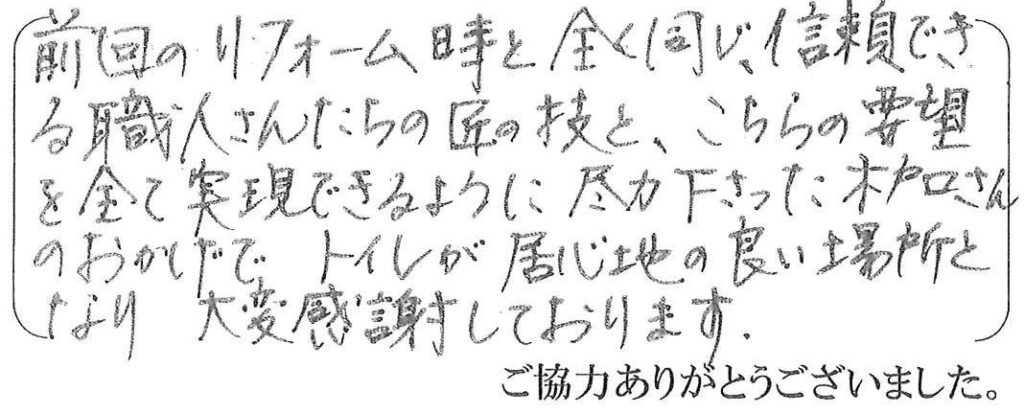 前回のリフォーム時と全く同じ、信頼でき
る職人さんたちの匠の技と、こちらの要望
を全て実現できるように尽力下さった木戸口さん
のおかげで、トイレが居心地の良い場所と
なり大変感謝しております.
ご協力ありがとうございました。